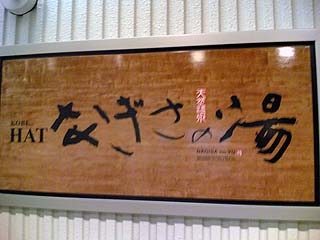 KOBE
HAT
なぎさの湯
天然温泉
NAGISA no YU